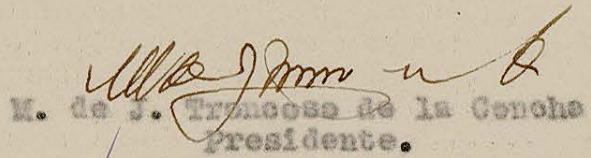 M. de J. Troncoso de la Concha
Presidente.